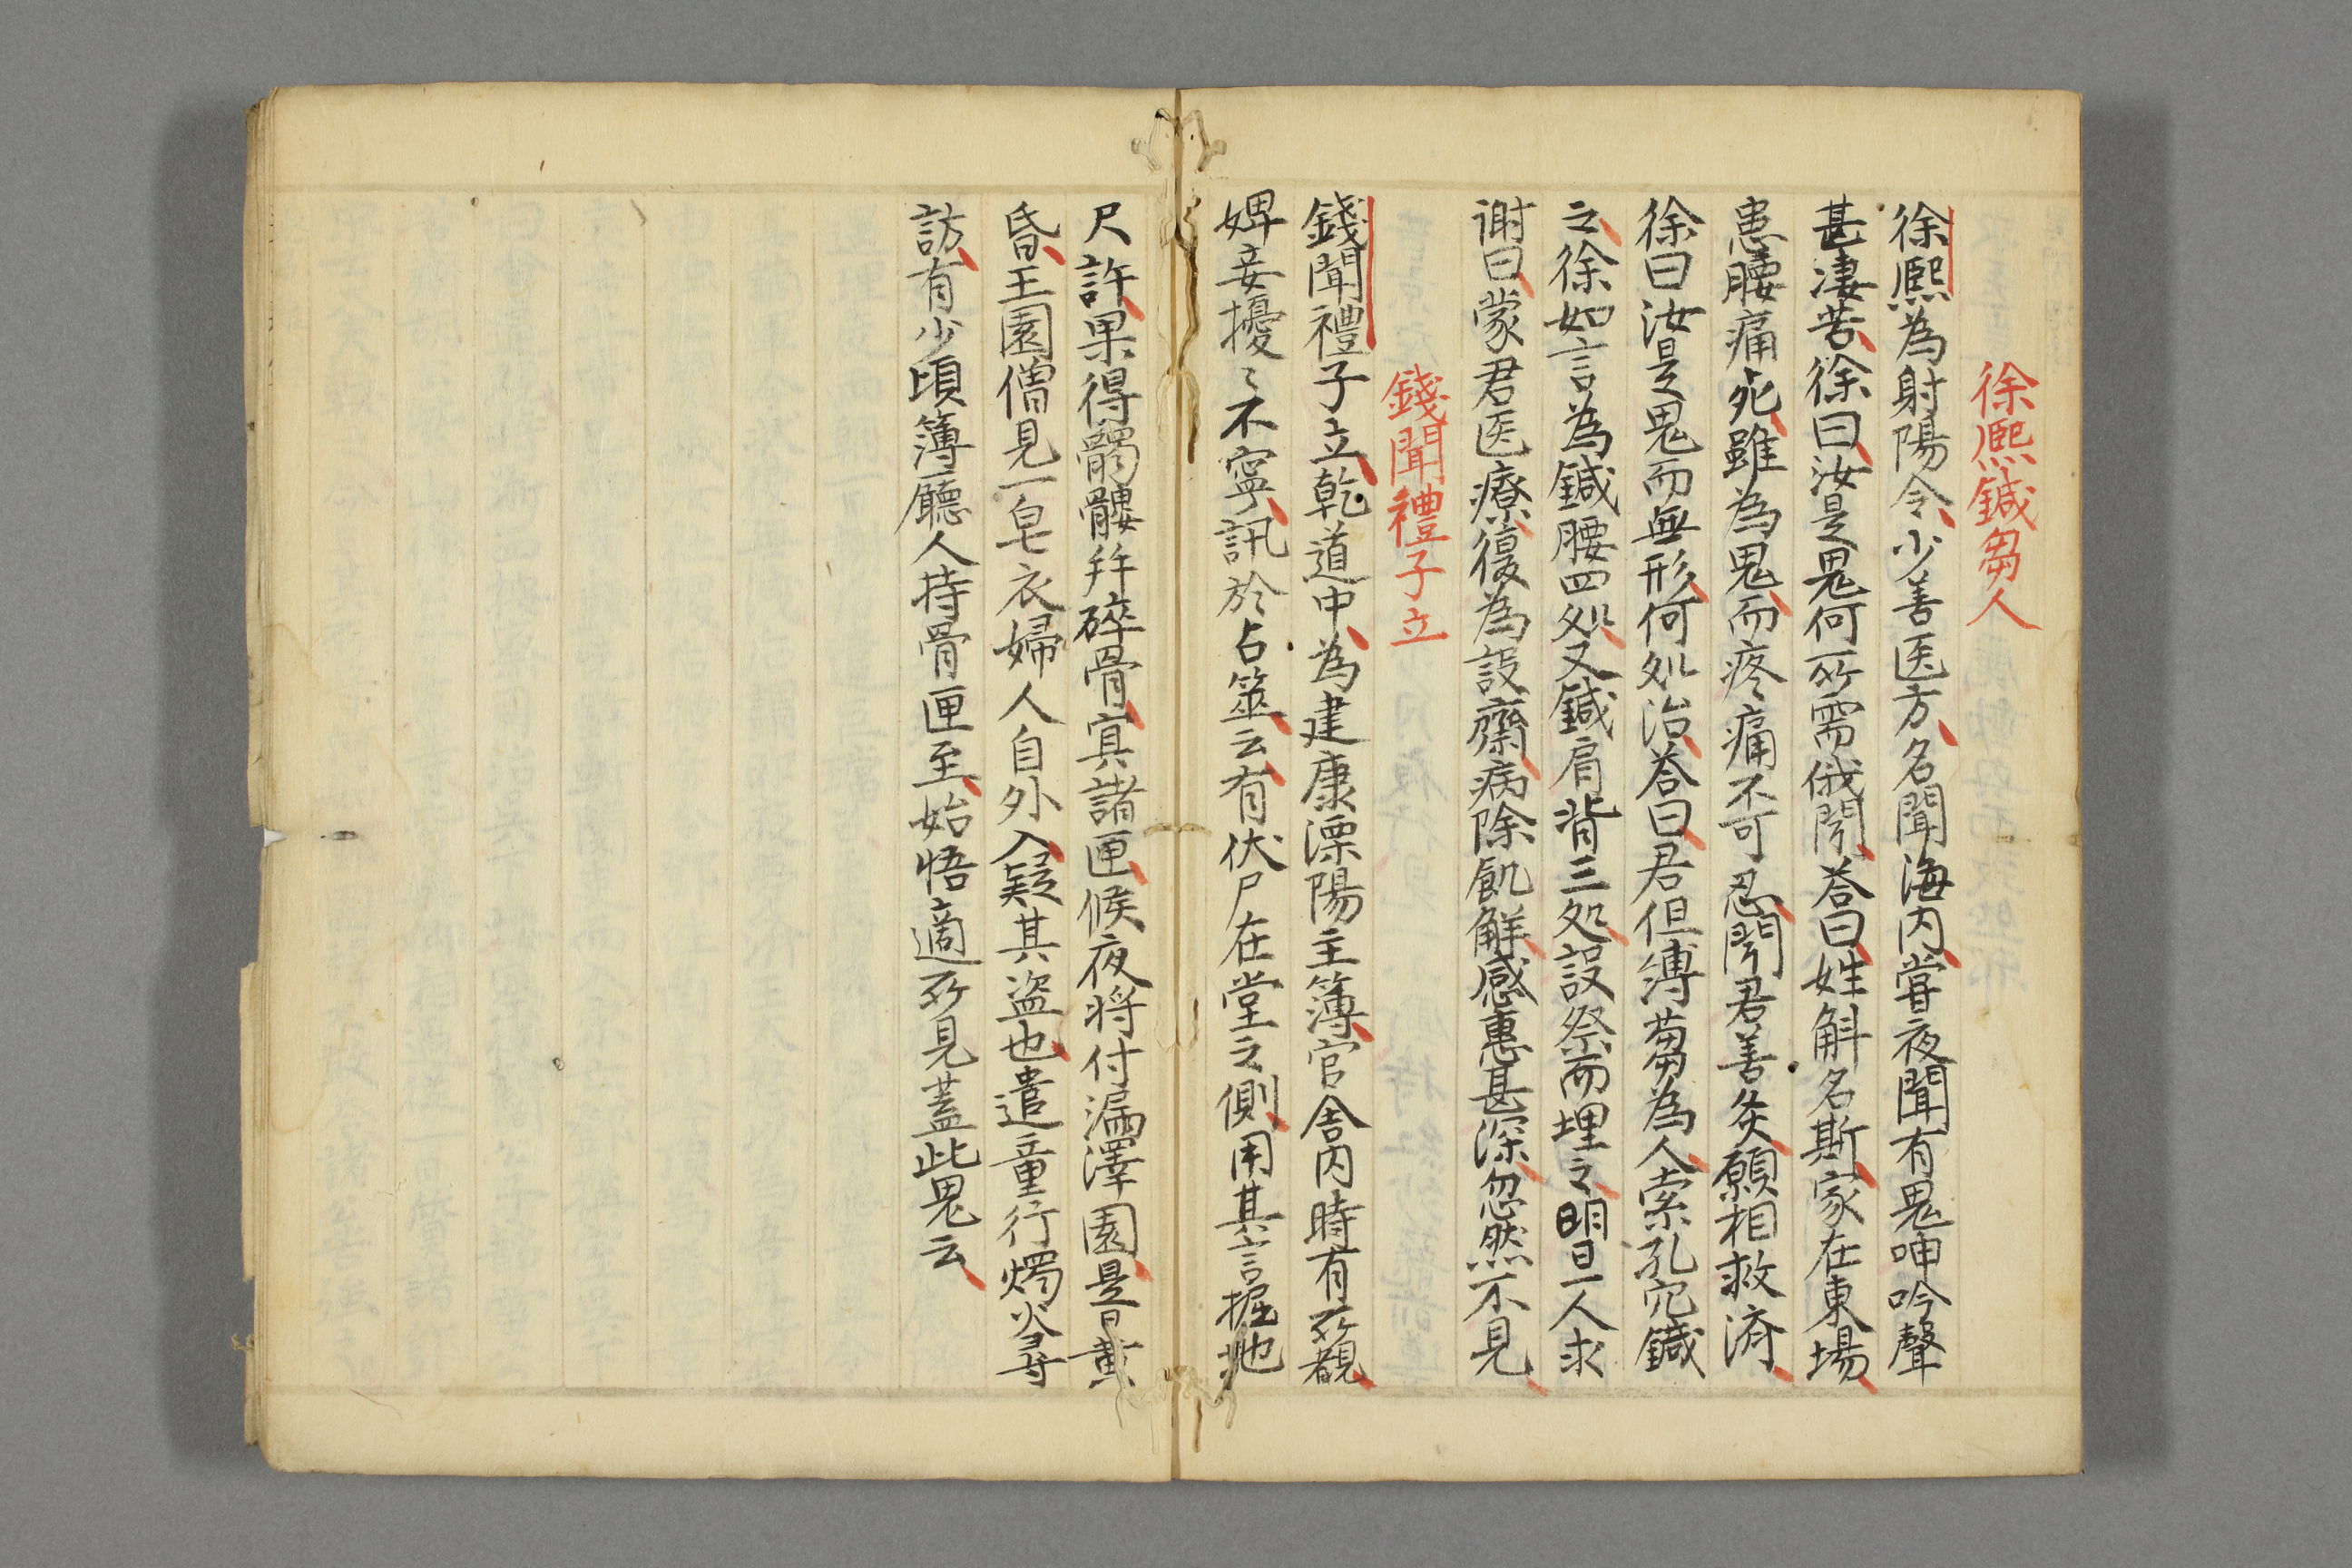 徐熈鍼芻人
徐熈為射陽令少善医方名聞海内甞夜聞有鬼呻吟聲
甚凄苦徐曰汝是鬼何所需俄聞荅曰姓斛名斯家在東場
患腰痛死雖為鬼而疼痛不可忍聞君善灸願相救済
徐曰汝是鬼而無形何処治荅曰君但縛蒭為人索孔穴鍼
之徐如言為鍼腰四処又鍼肩背三処設祭而埋之明日一人求
谢曰蒙君医療復為設齋病除飢觧感惠甚深忽然不見
錢聞禮子立
錢聞禮子立乾道中為建康溧陽主簿官舎内時有所覩
婢妾擾〻不寧訊於占筮云有伏尸在堂之側用其言掘地
尺許果得髑髏并碎骨寘諸匣候夜将付漏澤園是日黄
昏王園僧見一皂衣婦人自外入疑其盗也遣童行燭火尋
訪有少頃簿廳人持骨匣至始悟適所見蓋此鬼云